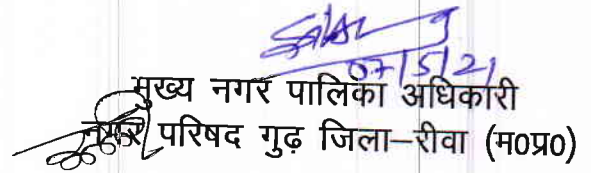 07/5/21
मुख्य नगर पालिका अधिकारी
नगर परिषद गुढ़ जिला–रीवा (म0प्र0)